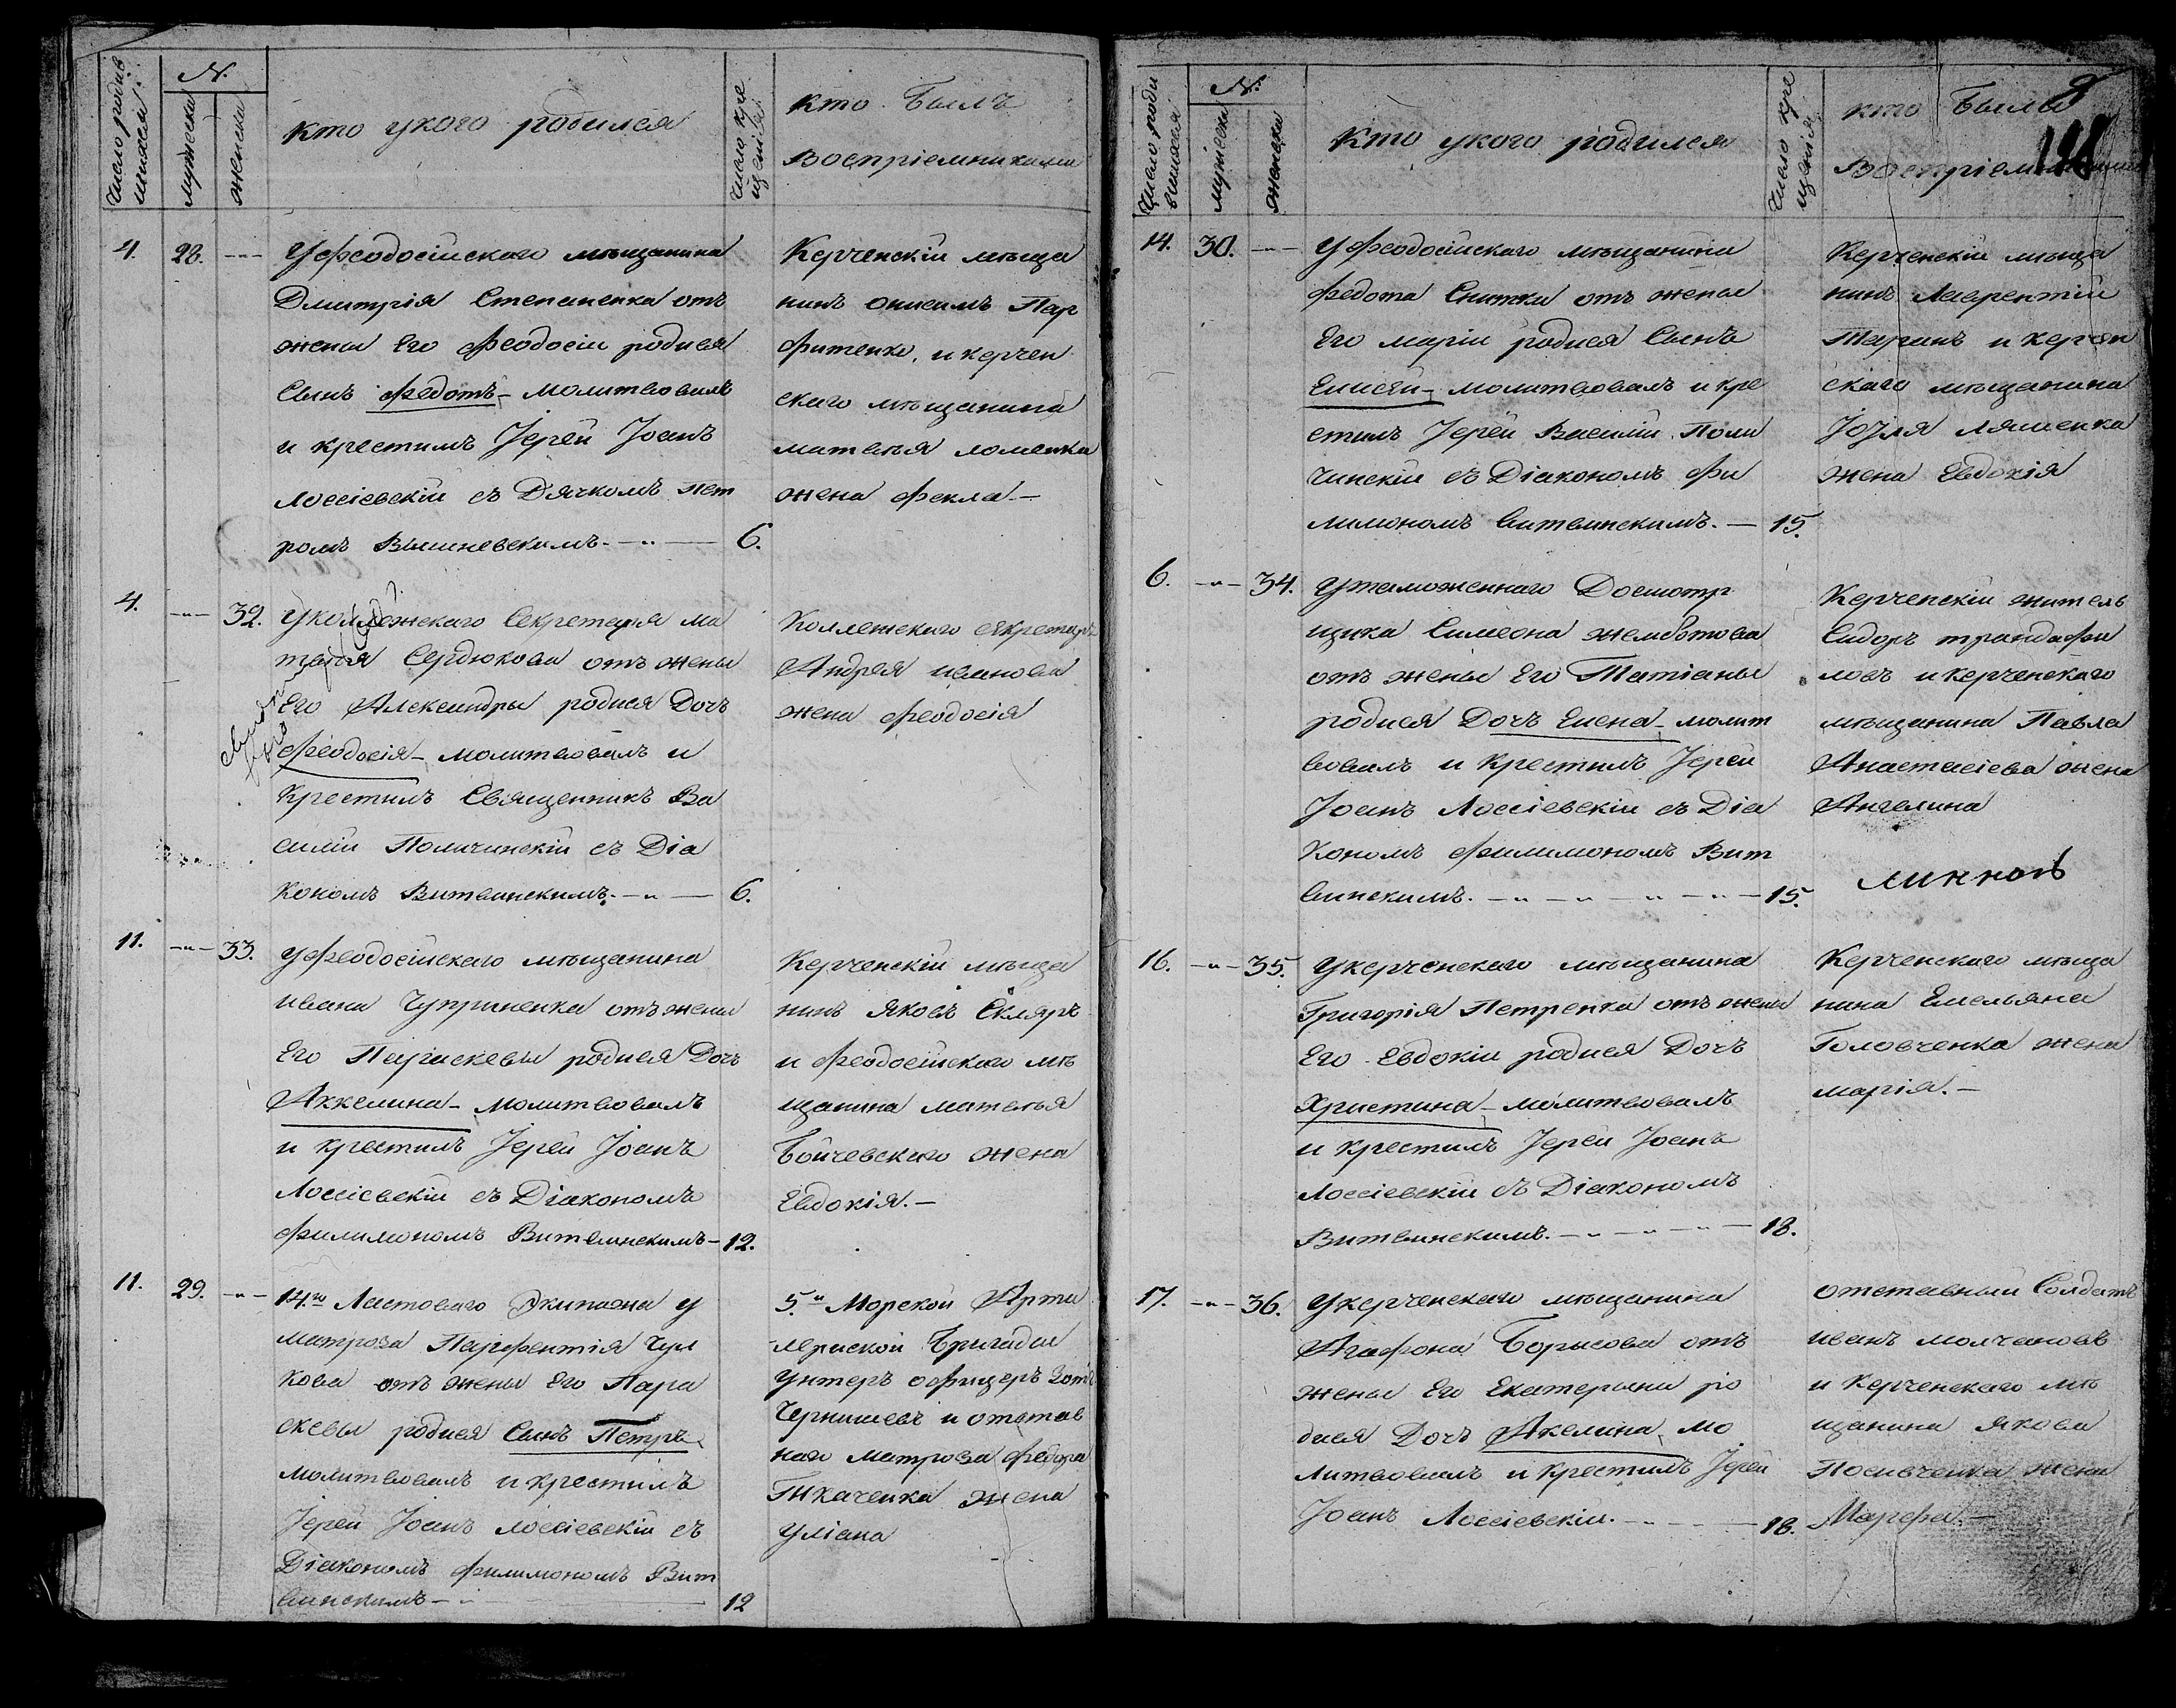 Число родив
шихся
№.
мужеска
женска
кто укого родился
число кре
щенія
кто Былъ
Воспріемниками
4. 28. ---
У Феодосійского мѣщанина
Дмитрія Степаненка отъ
жены Его Феодосіи родися
Сынъ Федотъ - молитвовалъ
и крестилъ Іерей Іоанъ
Лоссіевскій съ Дячкомъ Пет
ромъ Вышневскимъ. - 6.
Керченскій мѣща
нинъ онисимъ Пар
фитенко, и керчен
скаго мѣщанина
матвѣя ломенка
жена Фекла. -
4. --- 32.
Уколежскаго Секретаря ма
твѣя Сердюкова отъ жены
Его Александры родися Дочь
Феодосія - молитвовалъ и
Крестилъ Священникъ Ва
силій Поличинскій съ Діа
Кономъ Витвинскимъ. - 6.
Коллежскаго секретаря
Андрея иванова
жена Феодосія
11. --- 33.
У Феодосійскаго мѣщанина
ивана Чуприненка отъ жены
Его Параскевы родися Дочь
Аккелина - молитвовалъ
и крестилъ Іерей Іоанъ
Лоссіевскій съ Діакономъ
Филимономъ Витвинскимъ - 12.
Керченскій мѣща
нинъ Яковъ Скляръ
и Феодосійскаго мѣ
щанина матвѣя
Бойчевскаго жена
Евдокія. -
11. 29. ---
14го Ластоваго Экипажа у
матроза Парфентія Чул
Кова отъ жены Его Пара
скевы родися Сынъ Петръ
молитвовалъ и крестилъ
Іерей Іоанъ Лоссіевскій съ
Діакономъ Филимономъ Вит
винскимъ - 12
5й Морской Арти
лериской Бригады
Унтеръ офицеръ
Чернишевъ и отстав
наго матроза Федора
Ткаченка жена
Уліана
Число роди
вшихся
№.
мужеска
женска
Кто укого родился
Число кре
щенія
кто Былъ
Воспріемниками
14. 30. ---
У Феодосійскаго мѣщанина
Федота Снитки отъ жены
Его маріи родися Сынъ
Елисей - молитвовалъ и кре
стилъ Іерей Василій Поли
чинскій съ Діакономъ Фи
лимономъ Витвинскимъ. - 15.
Керченскій мѣща
нинъ Лаврентій
Таранъ и керчен
скаго мѣщанина
Іозля Ляшенка
жена Евдокія
6. --- 34.
Утаможеннаго Досмотр
щика Симеона
отъ жены Его Татіаны
родися Дочь Елена - молит
вовалъ и Крестилъ Іерей
Іоанъ Лоссіевскій съ Діа
Кономъ Филимономъ Вит
винскимъ. - 15.
Керченскій житель
Сидоръ трандафи
ловъ и керченскаго
мѣщанина Павла
Анастасіева жена
Ангелина
16. --- 35.
Укерченскаго мѣщанина
Григорія Петренка отъ жены
Его Евдокіи родися Дочь
Христина - молитвовалъ
и крестилъ Іерей Іоанъ
Лоссіевскій съ Діакономъ
Витвинскимъ. - 18.
Керченскаго мѣща
нина Емельяна
Головченка жена
марія. -
17. --- 36.
Укерченскаго мѣщанина
Агафона Борисова отъ
жены Его Екатерины ро
дися Дочь Акелина, мо
литвовалъ и крестилъ Іерей
Іоанъ Лоссіевскій. - 18.
отставный Солдатъ
иванъ молчановъ
и Керченскаго мѣ
щанина якова
Посивченка жена
Марфа. -